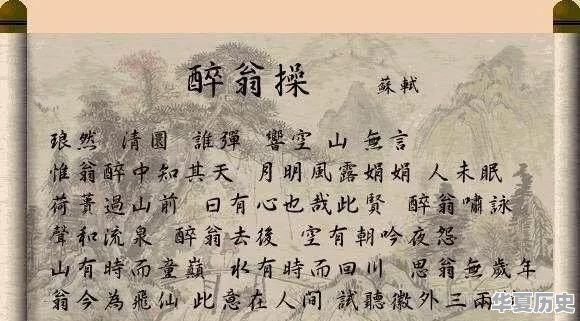 醉翁操 蘇軾
琅然 清圓 誰彈 響空 山 無言
惟翁醉中知其天 月明風露娟娟 人未眠
荷蕢過山前 曰有心也哉此賢 醉翁嘯詠
聲和流泉 醉翁去後 空有朝吟夜怨
山有時而童巔 水有時而回川 思翁無歲年
翁今為飛仙 此意在人间 試聽徽外三兩
华夏历史